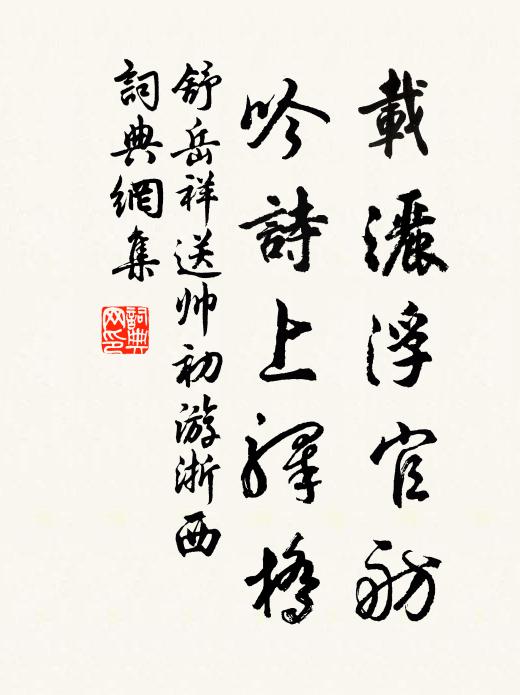 載灑浮官舫
吟詩上驛橋
舒岳祥送帅初游浙西
詞典網集
詞典
网印